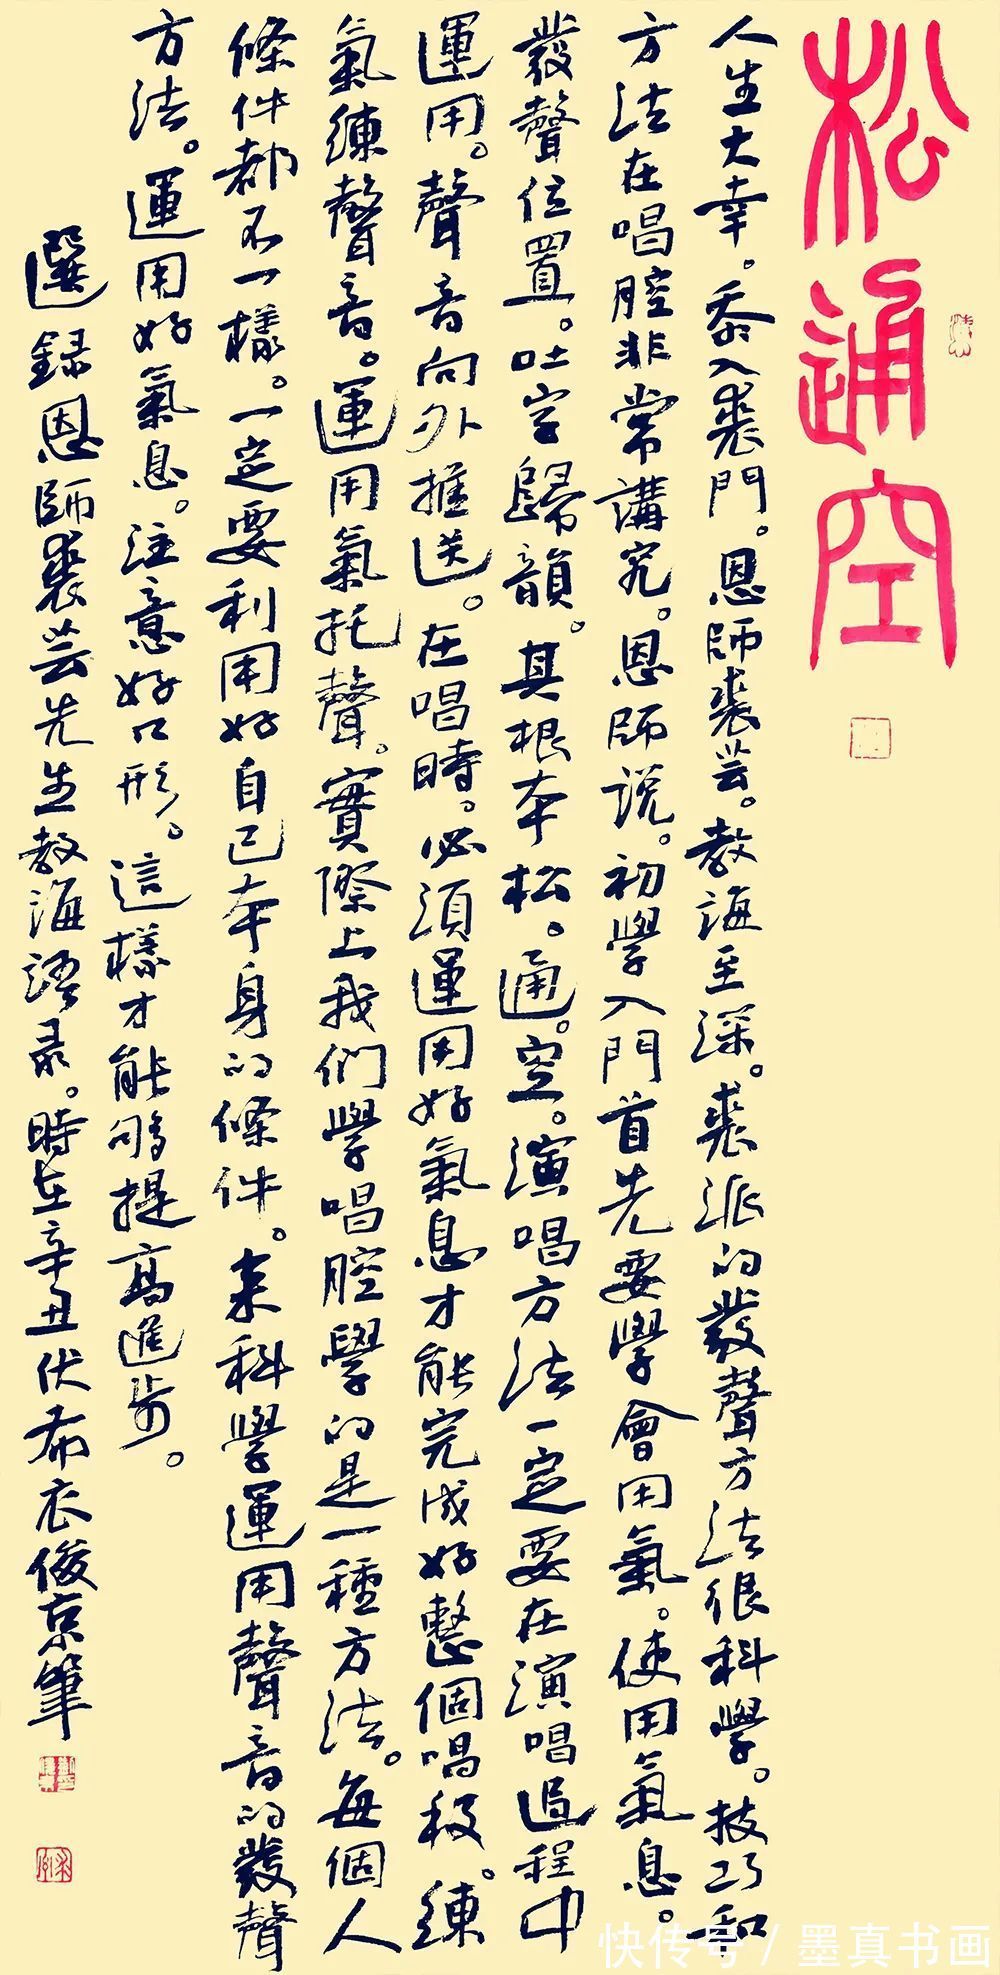 松通空
人生大幸。忝入裘門。恩師裘芸。教誨至深。裘派的發聲方法很科學。技巧和
方法在唱腔非常講究。恩師説。初學入門首先要學會用氣。使用氣息。
發聲位置。吐字歸韻。其根本松。通。空。演唱方法一定要在演唱過程中
運用。聲音向外推送。在唱時。必須運用好氣息才能完成好整個唱段。練
氣練聲音。運用氣托聲。實際上我們學唱腔學的是一種方法。每個人
條件都不一樣。一定要利用好自己本身的條件。來科學運用聲音的發聲
方法。運用好氣息。注意好口形。這樣才能夠提高進步。
選録恩師裘芸先生教誨語录。時在辛丑伏布衣俊京筆
快传号/墨真书画